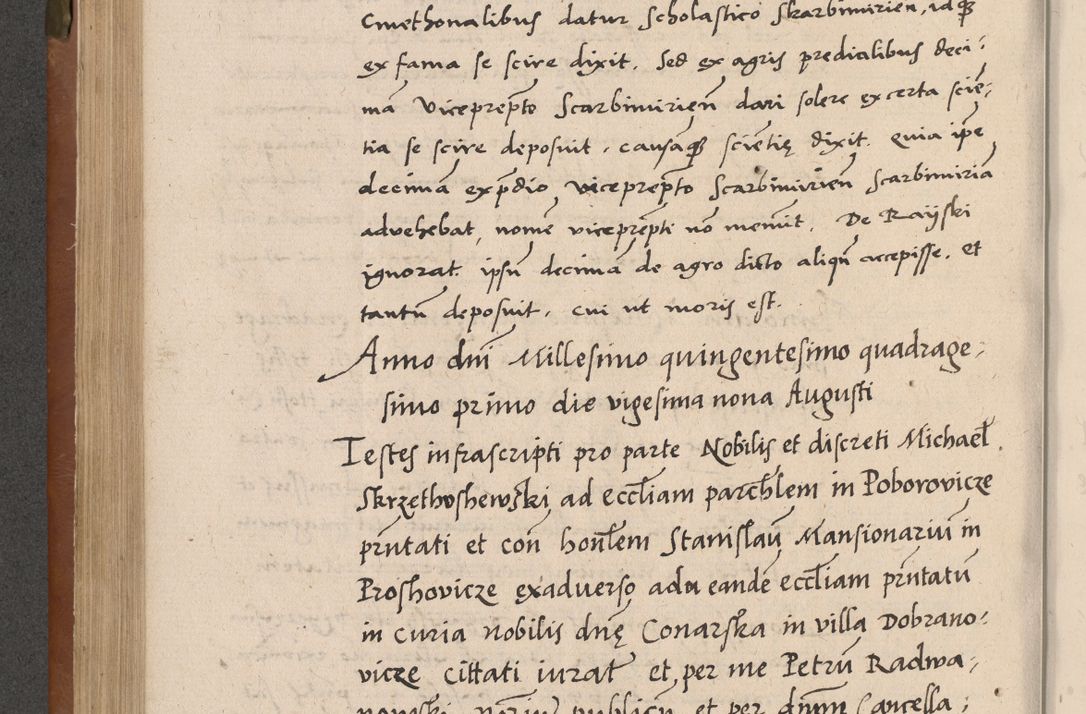 Cmethonalibus datur Scholastico Skarbimirien, idq̃
ex fama se scire dixit. Sed ex agris predialibus deci-
mã viceprep̃to Scarbimirieñ dari solere ex certa sciẽ-
tia se scire deposuit, causaq̃ sciẽtię dixit. Quia ip̃e
decimã exp̃dio viceprep̃to Scarbimirieñ Scarbimiriã
advehebat, nomẽ viceprep̃ti nõ meminit. De Rayski
ignorat ipsũ decimã de agro dicto aliqñ accepisse, et
tantũ deposuit, cui ut moris est.
Anno dñi Millesimo quingentesimo quadrage-
simo primo die vigesima nona Augusti
Testes infrascripti pro parte Nobilis et discreti Michael
Skrzethvshewski ad eccl̃iam parch̃lem in Poborovicze
prñtati et coñ honl̃em Stanislaũ Mansionariũ in
Proshovicze exadverso adu eandẽ eccl̃iam prñtatũ
in curia nobilis dnę̃ Conarska in villa Dobrano-
vicze cittati iurat et per me Petrũ Radwa-
nowski notr̃iũ publicũ et per dnm̃ Cancella-